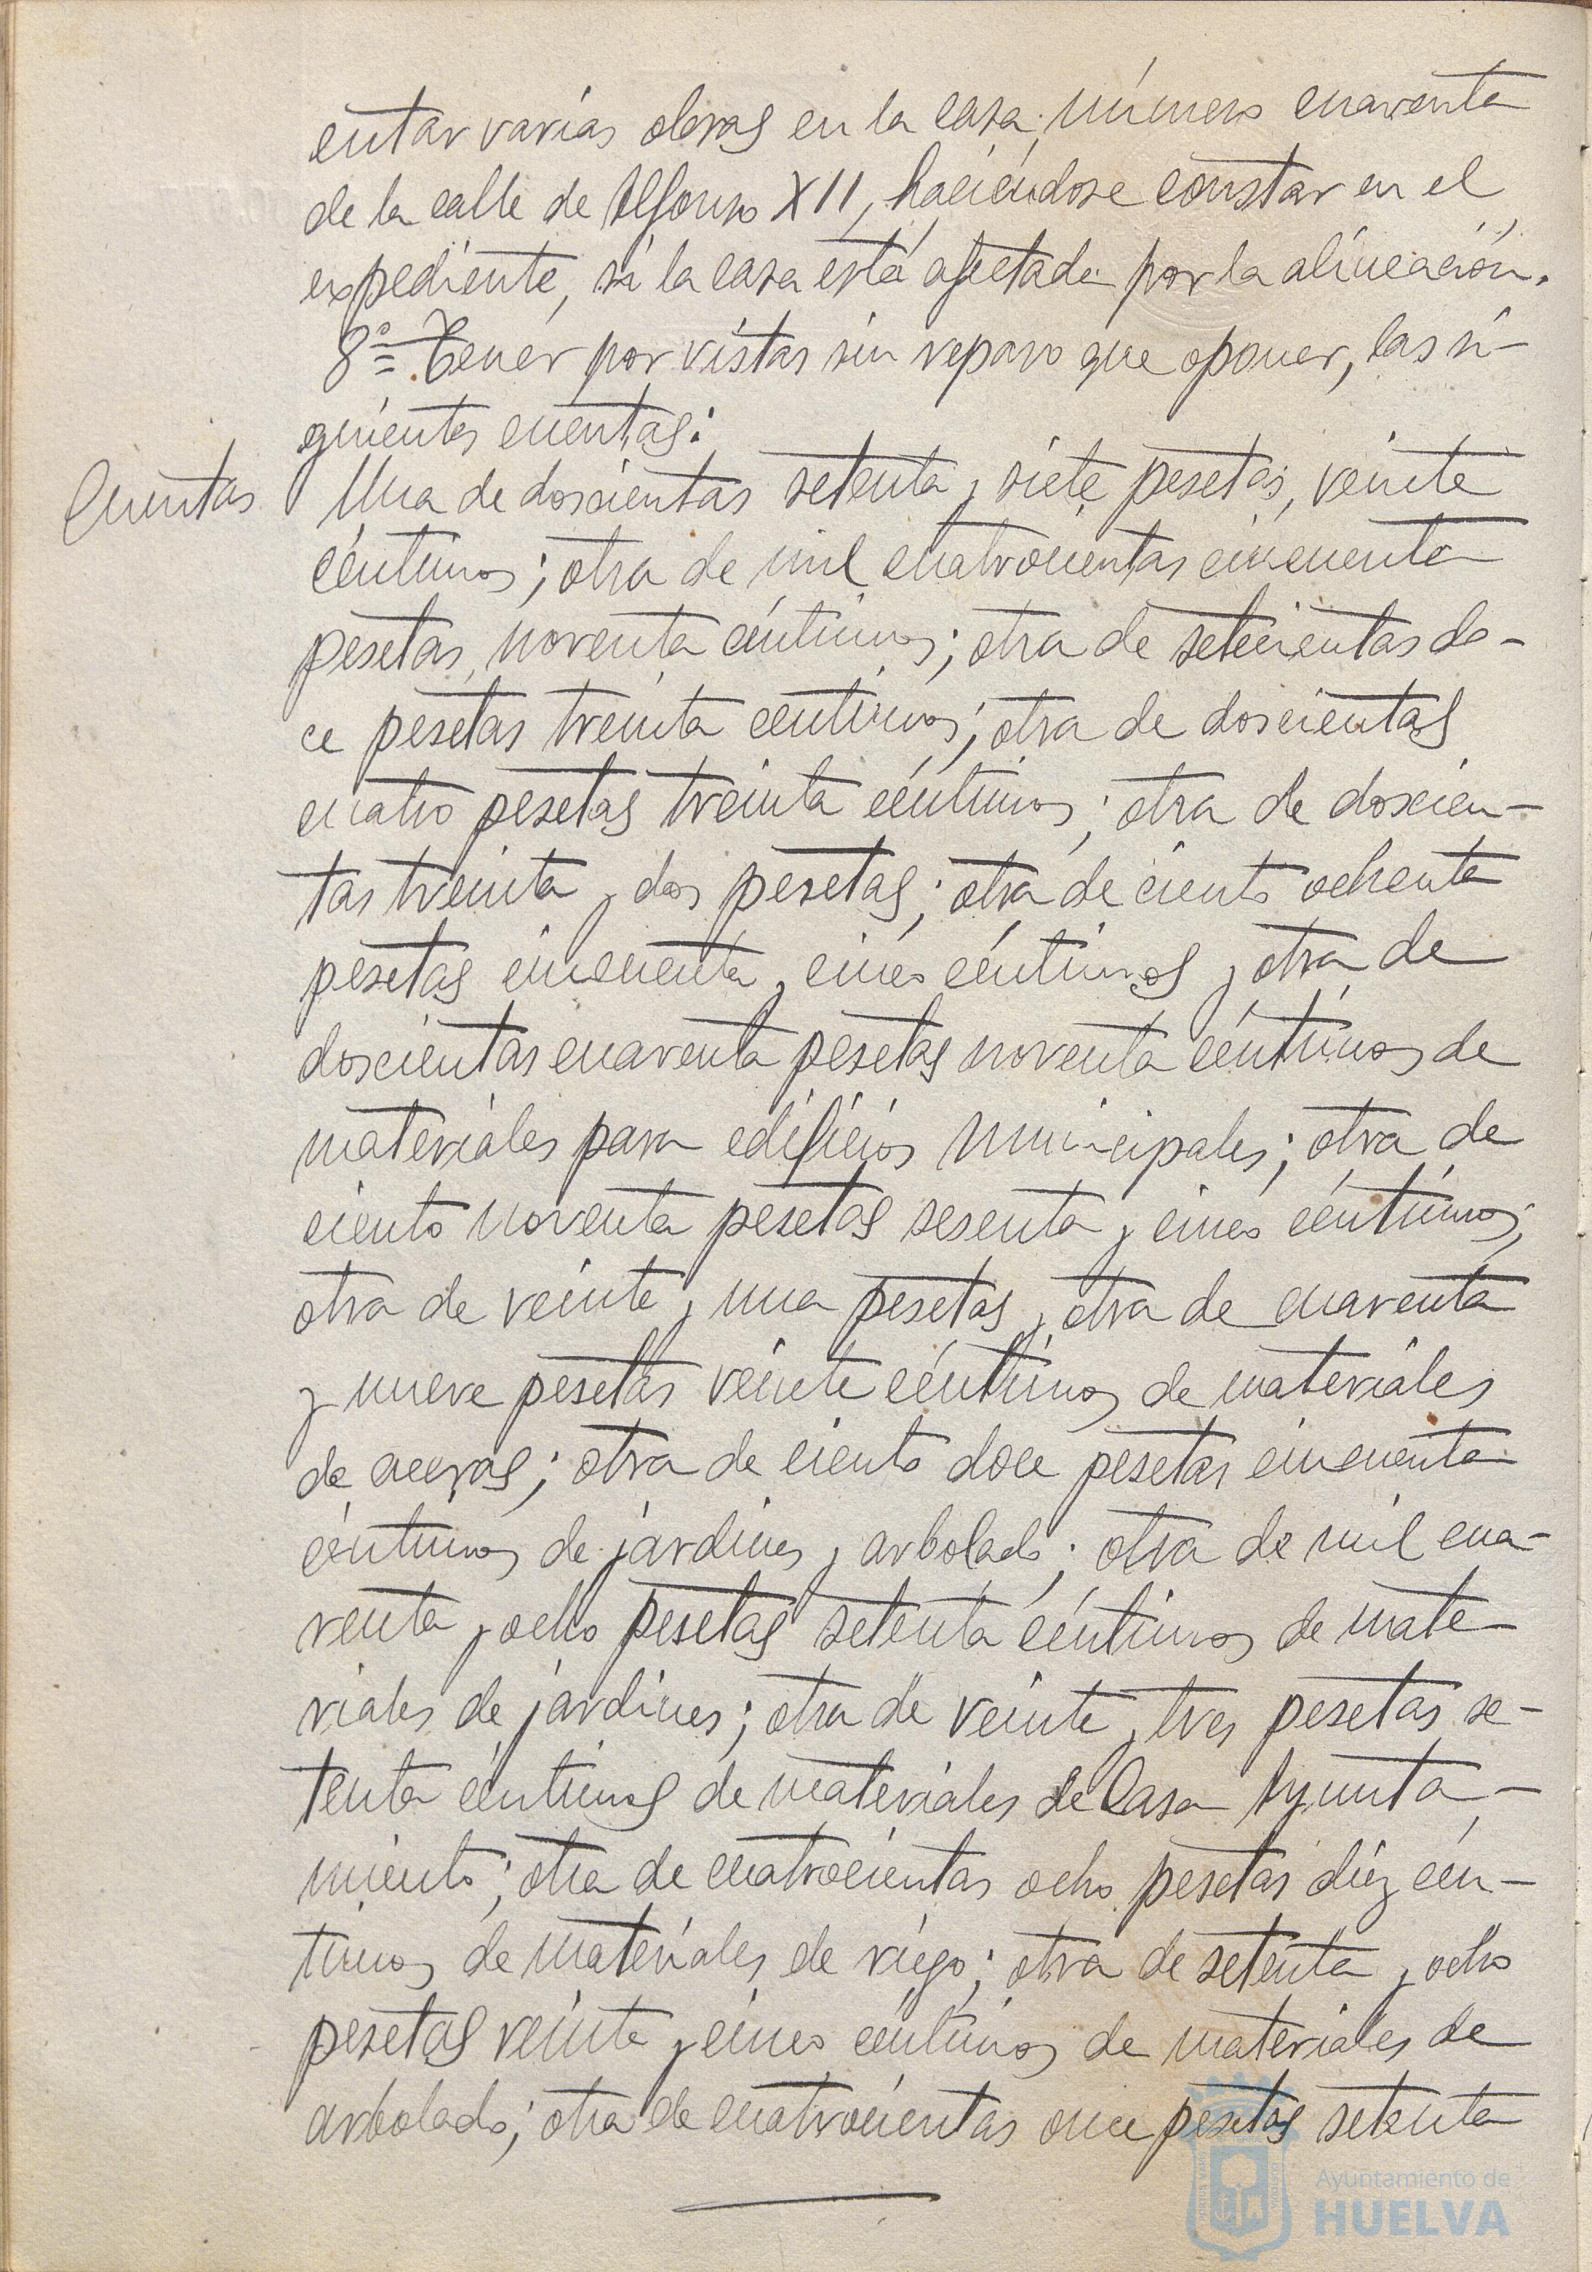 cutar varias obras en la casa número cuarenta
de la calle de Alfonso XII, haciéndose constar en el
expediente, si la casa está afectada por la alineación.
8º = Tener por vistas sin reparo que oponer, las si-
guientes cuentas:
Cuentas
Una de doscientas setenta y siete pesetas, veinte
céntimos; otra de mil cuatrocientas cincuenta
pesetas, noventa céntimos; otra de setecientas do-
ce pesetas treinta céntimos; otra de doscientas
cuatro pesetas treinta céntimos; otra de doscien-
tas treinta y dos pesetas; otra de ciento ochenta
pesetas cincuenta y cinco céntimos y otra de
doscientas cuarenta pesetas noventa céntimos de
materiales para edificios municipales; otra de
ciento noventa pesetas sesenta y cinco céntimos;
otra de veinte y una pesetas y otra de cuarenta
y nueve pesetas veinte céntimos de materiales
de aceras; otra de ciento doce pesetas cincuenta
céntimos de jardines y arbolado; otra de mil cua-
renta y ocho pesetas setenta céntimos de mate-
riales de jardines; otra de veinte y tres pesetas se-
tenta céntimos de materiales de Casa Ayunta-
miento; otra de cuatrocientas ocho pesetas diez cén-
timos de materiales de riego; otra de setenta y ocho
pesetas veinte y cinco céntimos de materiales de
arbolado; otra de cuatrocientas once pesetas setenta
Ayuntamiento de
HUELVA